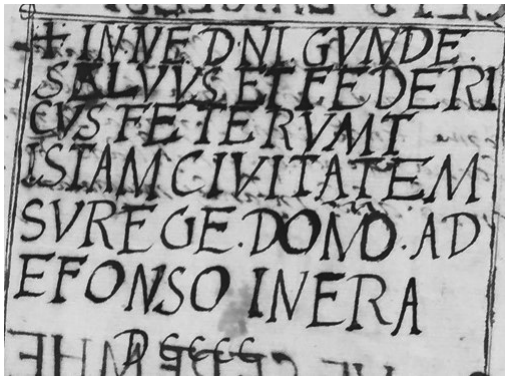 + INNE D·NI GVNDE.
SALVVS ET FEDERI
CVS FETERVMT
ISTAM CIVITATEM
SVREGE·DOMO·AD
EFONSO IN ERA
DCCCC